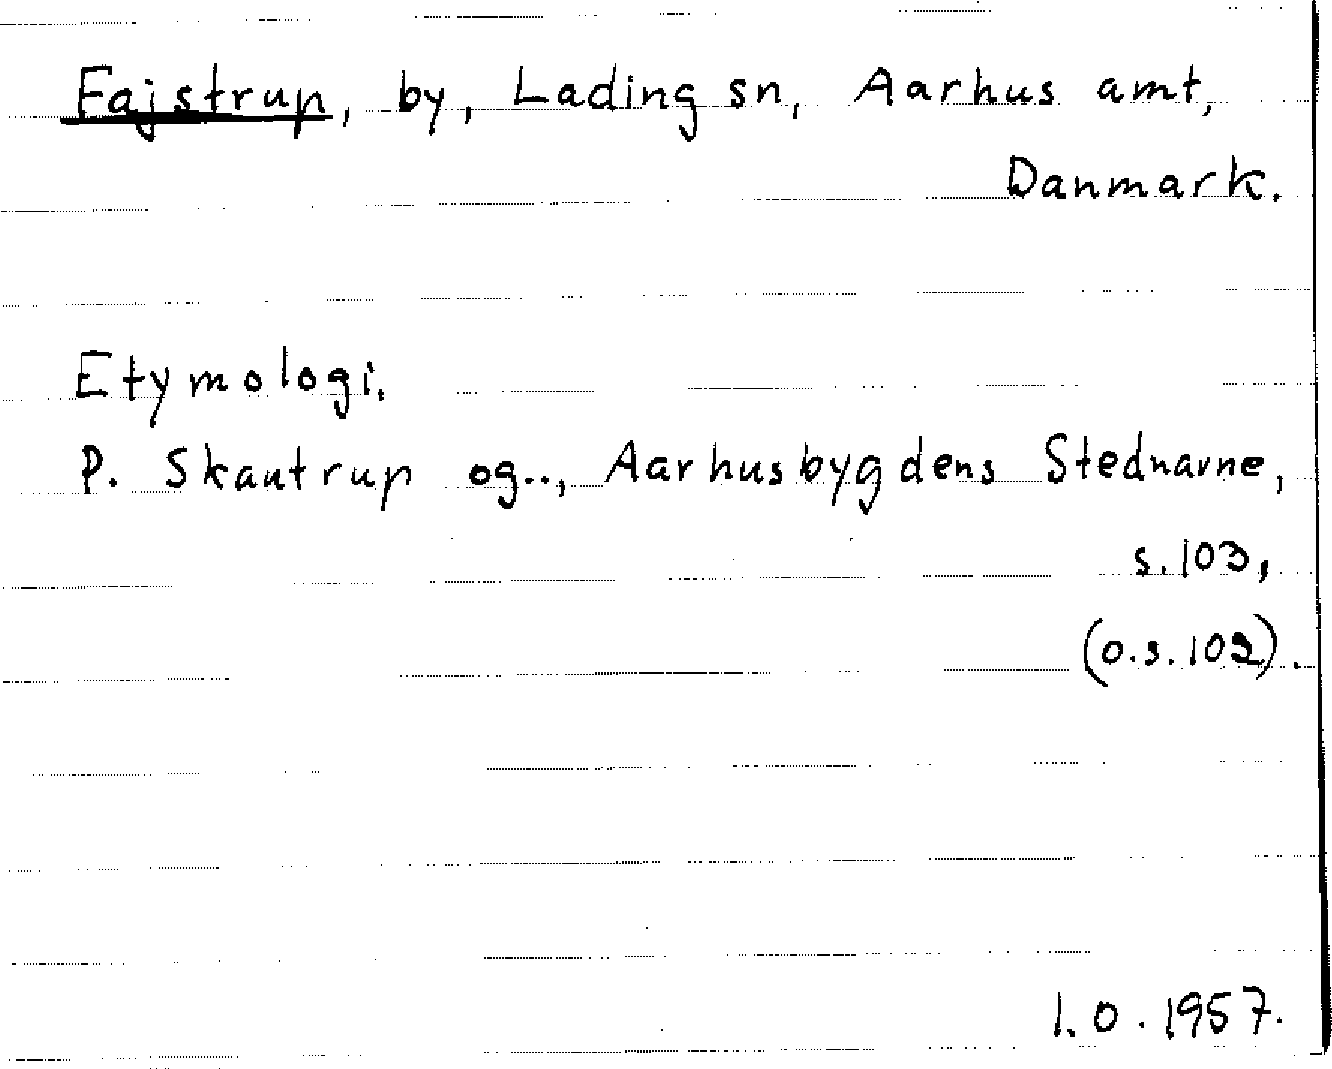 Fajstrup, by, Lading sn, Aarhus amt,
Danmark.
Etymologi.
P. Skautrup og.., Aarhusbygdens Stednavne,
s. 103,
(o.s. 102).
I. O. 1957.